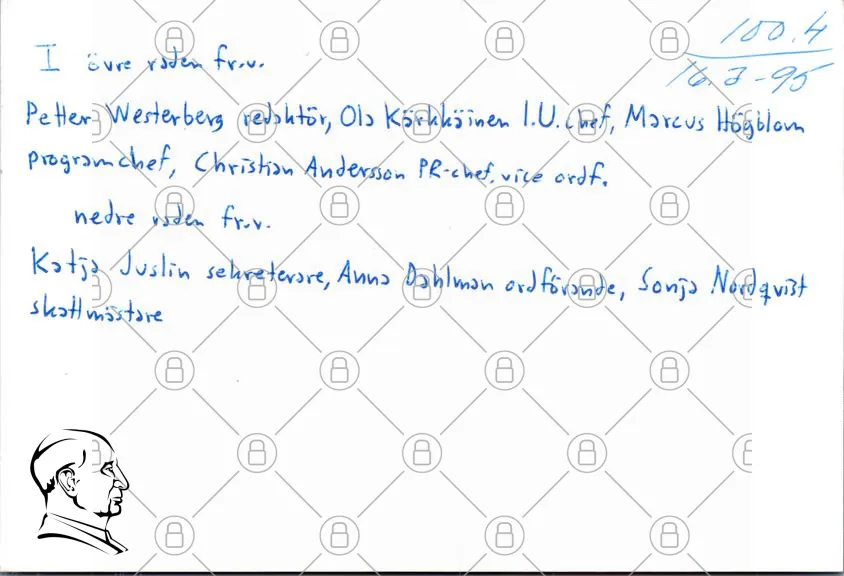 100.4
16.3-95
I övre raden fr.v.
Petter Westerberg redaktör, Ola Kärkkäinen I.U.chef, Marcus Högblom
programchef, Christian Andersson PR-chef, vice ordf.
nedre raden fr.v.
Katja Juslin sekreterare, Anna Dahlman ordförande, Sonja Nordqvist
skattmästare